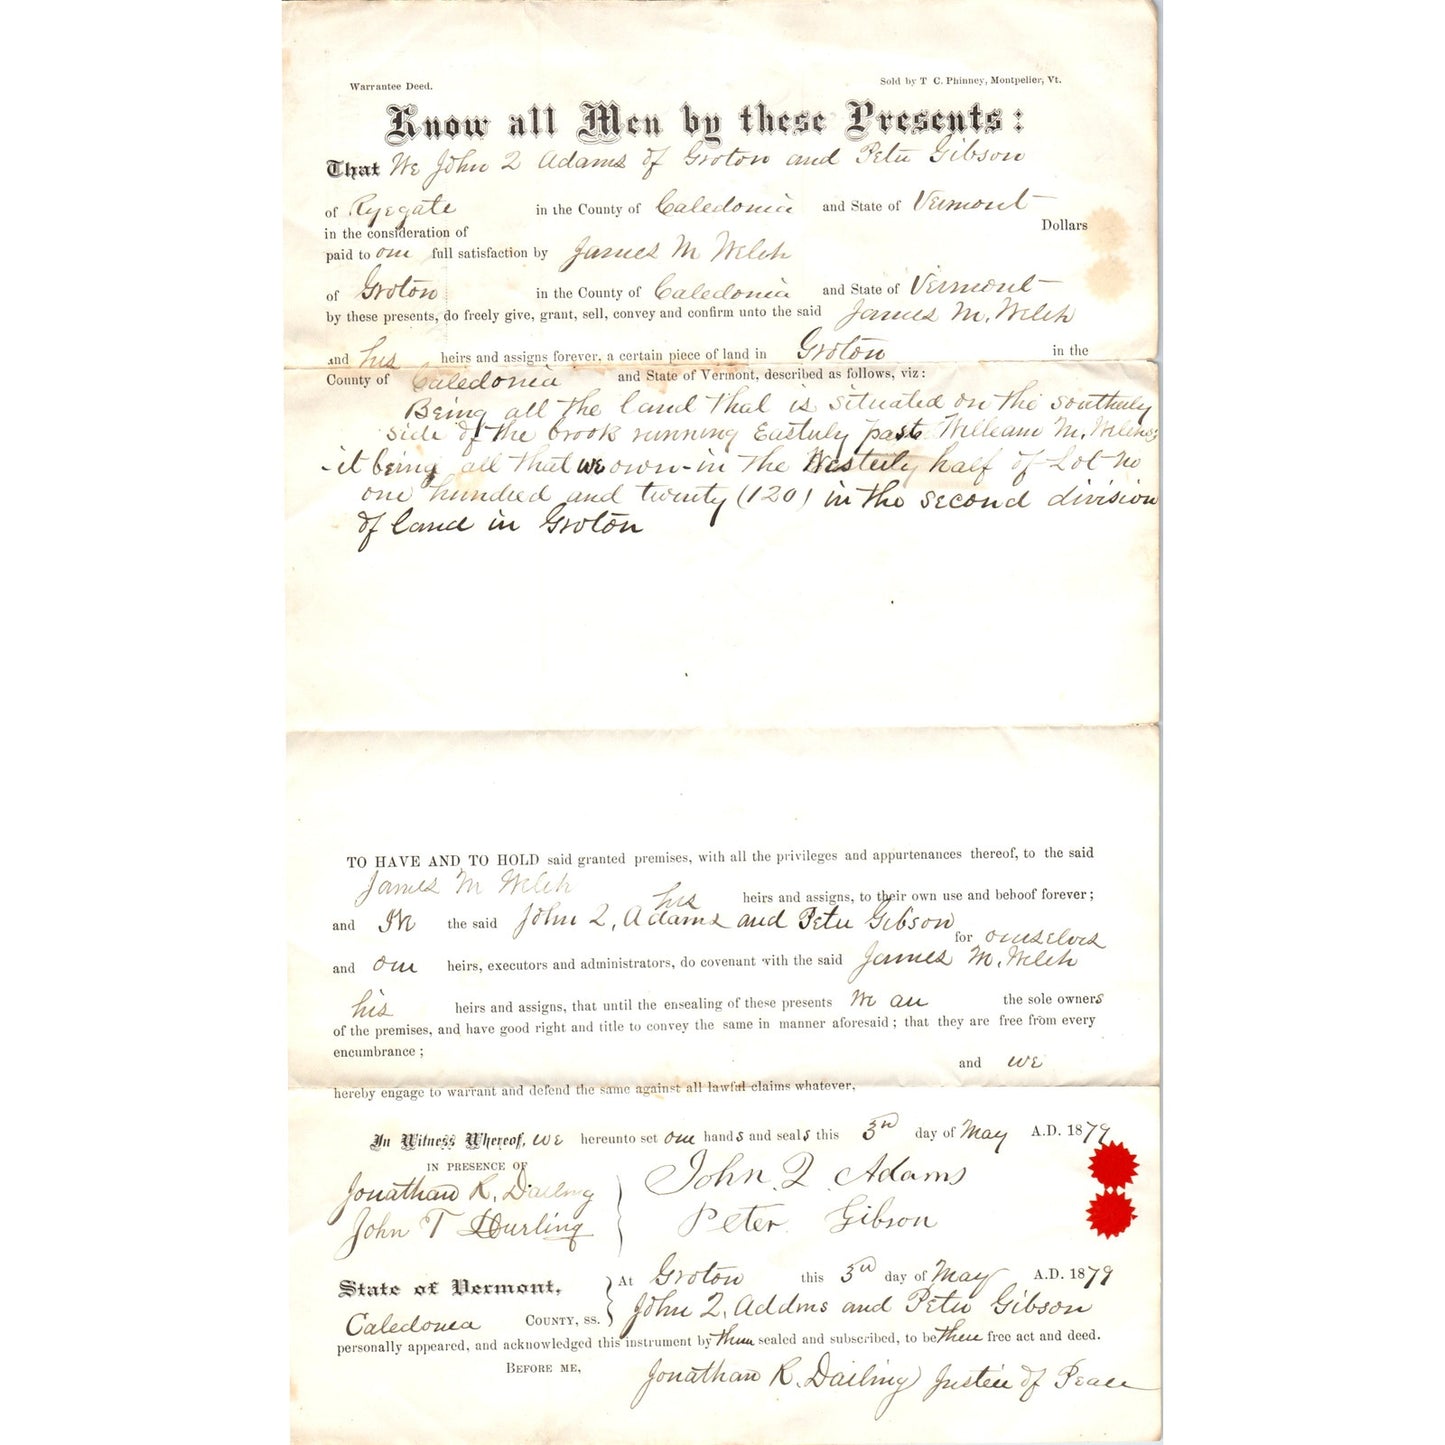 Warrantee Deed.
Sold by T C. Phinney, Montpelier, Vt.
Know all Men by these Presents:
That We John Q Adams of Groton and Peter Gibson
of Ryegate in the County of Caledonia and State of Vermont
in the consideration of Dollars
paid to our full satisfaction by James M Welch
of Groton in the County of Caledonia and State of Vermont
by these presents, do freely give, grant, sell, convey and confirm unto the said James M. Welch
and his heirs and assigns forever, a certain piece of land in Groton in the
County of Caledonia and State of Vermont, described as follows, viz:
Being all the land that is situated on the southerly
side of the brook running Easterly past William M.
it being all that we own in the Westerly half of Lot No
one hundred and twenty (120) in the second division
of land in Groton
TO HAVE AND TO HOLD said granted premises, with all the privileges and appurtenances thereof, to the said
James M Welch
his heirs and assigns, to their own use and behoof forever;
and We the said John Q. Adams and Peter Gibson
for ourselves
and our heirs, executors and administrators, do covenant with the said James M. Welch
his heirs and assigns, that until the ensealing of these presents We are the sole owners
of the premises, and have good right and title to convey the same in manner aforesaid; that they are free from every
encumbrance;
and we
hereby engage to warrant and defend the same against all lawful claims whatever,
In Witness Whereof, we hereunto set our hands and seals this 3rd day of May A.D. 1879
IN PRESENCE OF
Jonathan R. Darling John Q Adams
John T Darling Peter Gibson
State of Vermont, At Groton this 3rd day of May A.D. 1879
Caledonia COUNTY, ss. John Q. Addms and Peter Gibson
personally appeared, and acknowledged this instrument by them sealed and subscribed, to be their free act and deed.
BEFORE ME, Jonathan R. Darling Justice of Peace